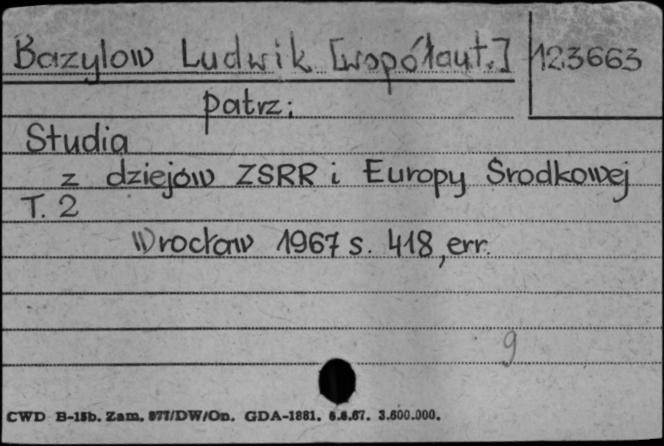 Bazylow Ludwik [współaut.] 123663
patrz:
Studia
z dziejów ZSRR i Europy Środkowej
T. 2
Wrocław 1967 s. 418, err.
9
CWD B-15b. Zam. 977/DW/On. GDA-1881. 6.6.67. 3.600.000.